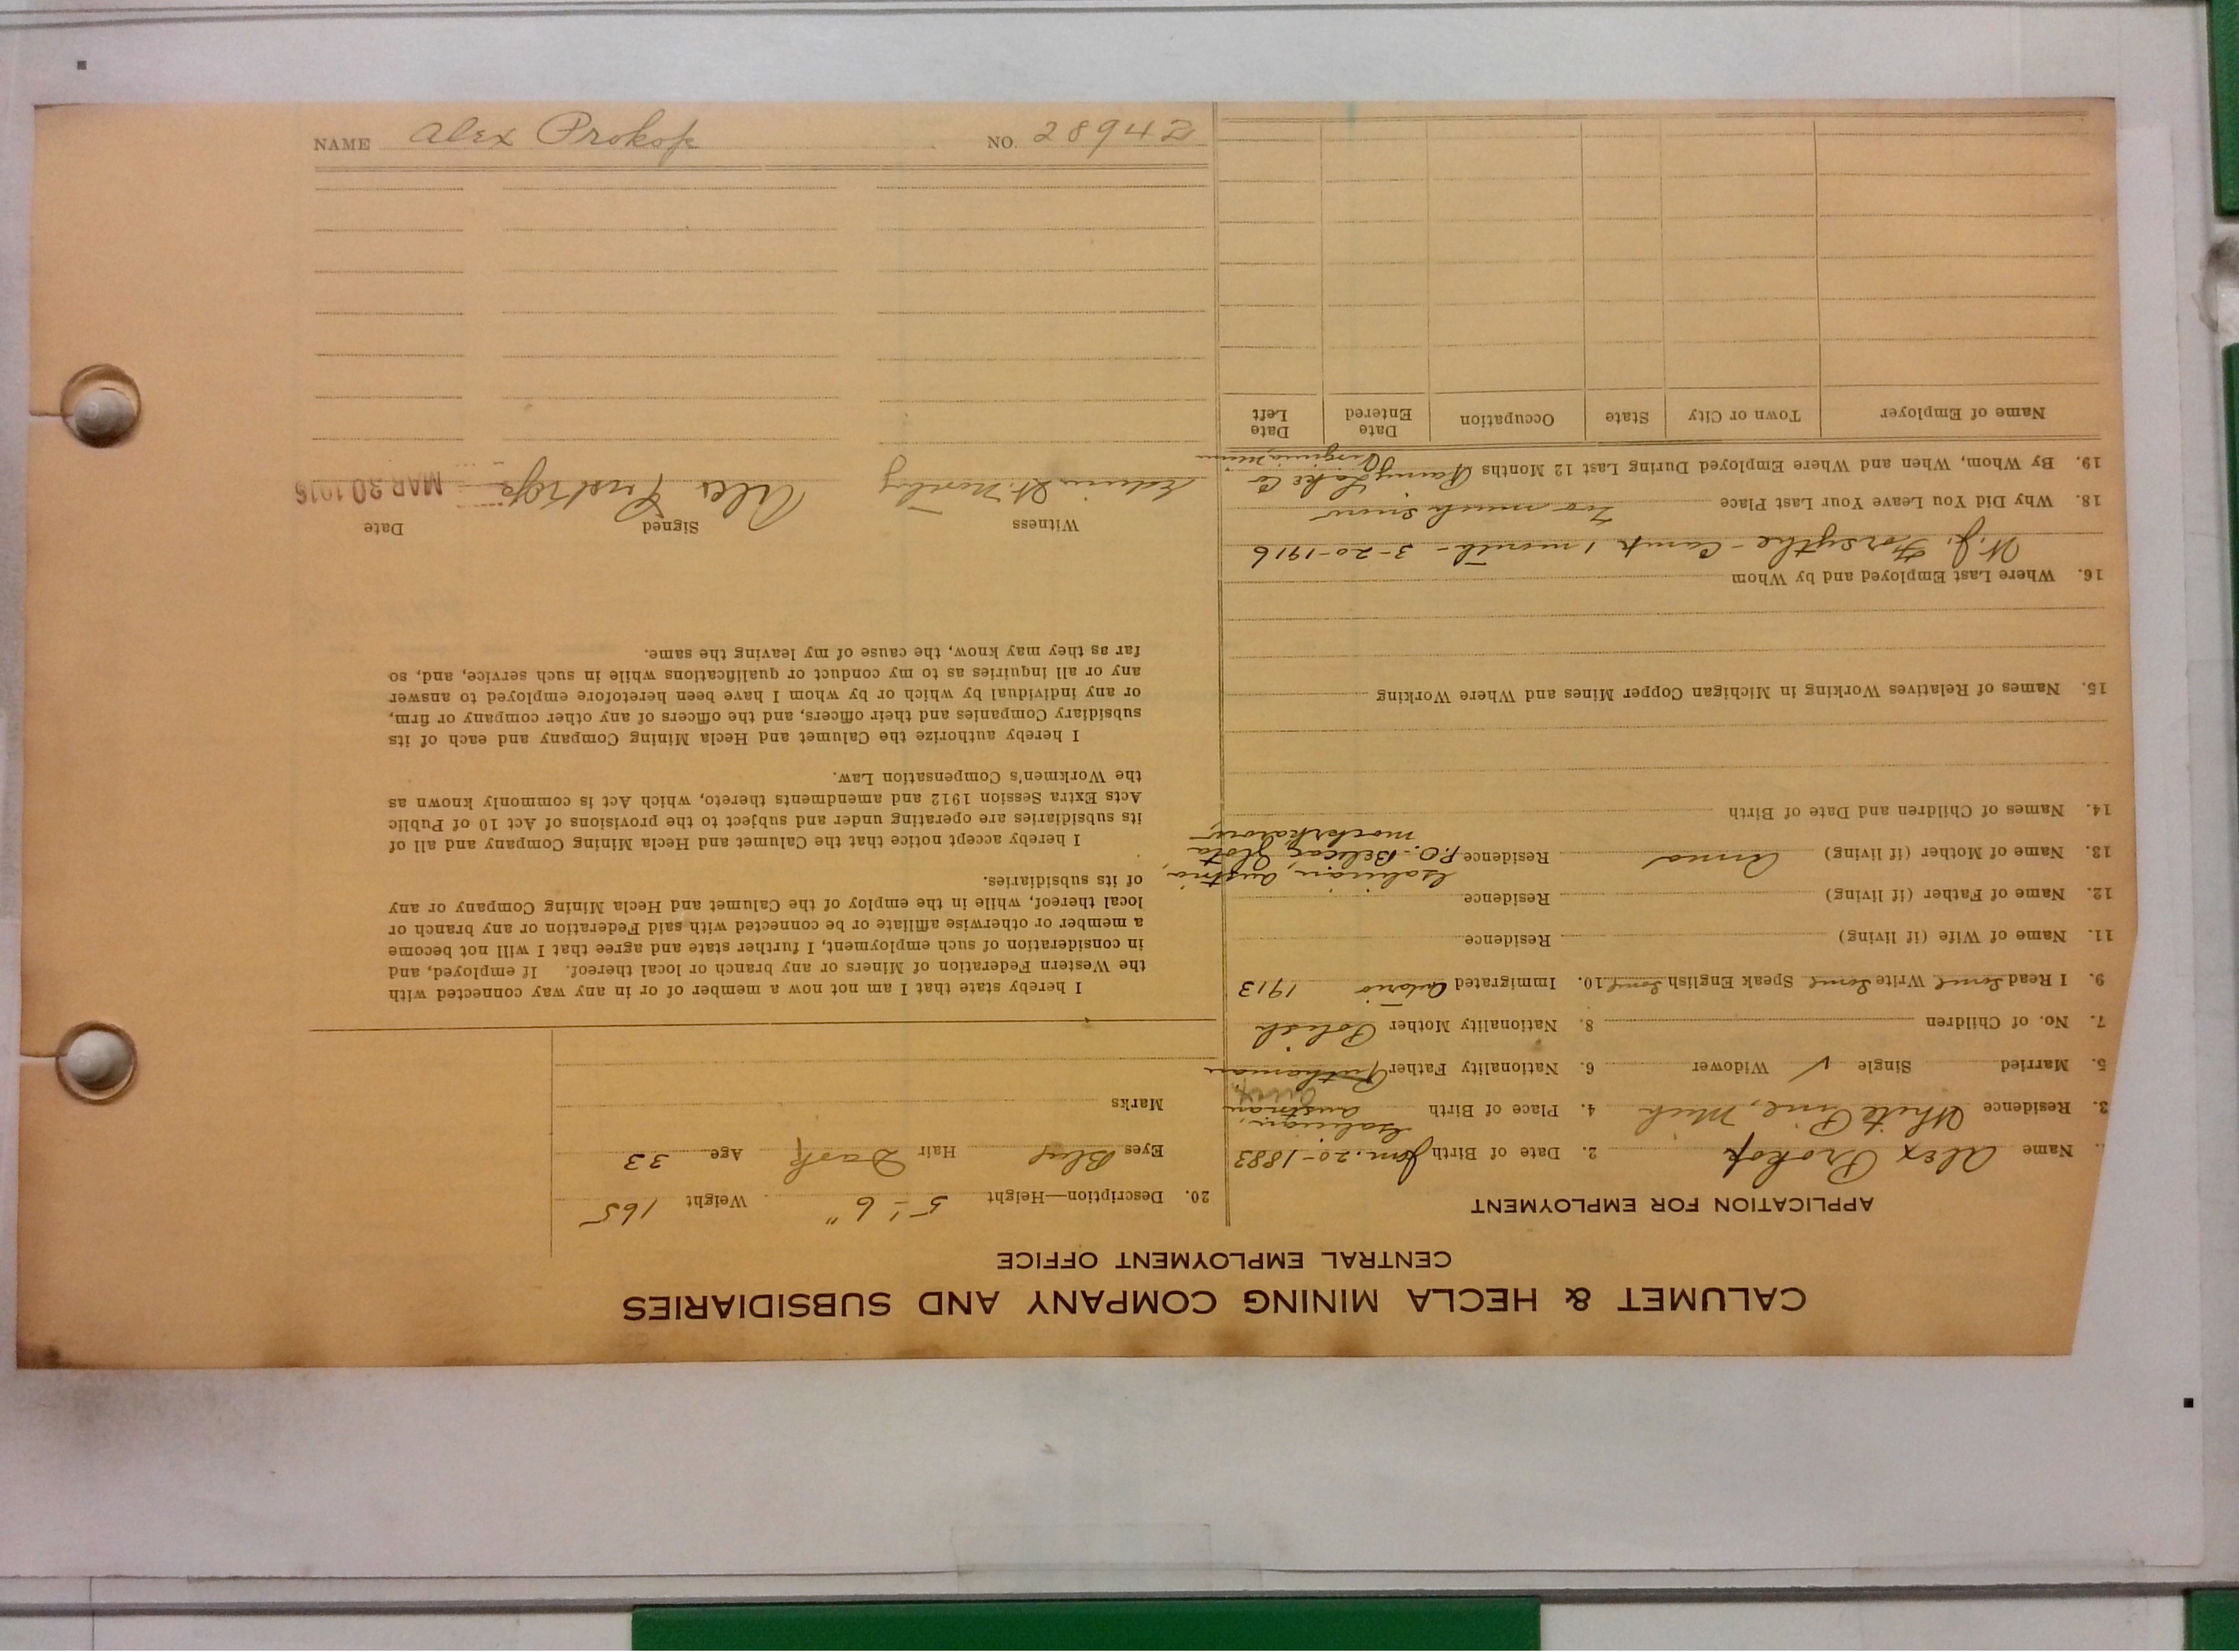 CALUMET & HECLA MINING COMPANY AND SUBSIDIARIES
CENTRAL EMPLOYMENT OFFICE
APPLICATION FOR EMPLOYMENT
Name Alex Prokop 2. Date of Birth Jan. 20-1883
3. Residence White Pine, Mich 4. Place of Birth Galician, Austrian
5. Married Single ✓ Widower 6. Nationality Father Ruthenian
7. No. of Children 8. Nationality Mother Polish
9. I Read Some Write Some Speak English Some 10. Immigrated 1913
11. Name of Wife (if living) Residence
12. Name of Father (if living) Residence Galician, Austria,
13. Name of Mother (if living) Anna Residence P.O. Zlota
14. Names of Children and Date of Birth
15. Names of Relatives Working in Michigan Copper Mines and Where Working
16. Where Last Employed and by Whom
W. J. Forsythe - Camp 1 month - 3-20-1916
18. Why Did You Leave Your Last Place Too much snow
19. By Whom, When and Where Employed During Last 12 Months Rainy Lake Co
Virginia, Minn
Name of Employer Town or City State Occupation Date Entered Date Left
20. Description—Height 5'-6" Weight 165
Eyes Blue Hair Dark Age 33
Marks
I hereby state that I am not now a member of or in any way connected with
the Western Federation of Miners or any branch or local thereof. If employed, and
in consideration of such employment, I further state and agree that I will not become
a member or otherwise affiliate or be connected with said Federation or any branch or
local thereof, while in the employ of the Calumet and Hecla Mining Company or any
of its subsidiaries.
I hereby accept notice that the Calumet and Hecla Mining Company and all of
its subsidiaries are operating under and subject to the provisions of Act 10 of Public
Acts Extra Session 1912 and amendments thereto, which Act is commonly known as
the Workmen's Compensation Law.
I hereby authorize the Calumet and Hecla Mining Company and each of its
subsidiary Companies and their officers, and the officers of any other company or firm,
or any individual by which or by whom I have been heretofore employed to answer
any or all inquiries as to my conduct or qualifications while in such service, and, so
far as they may know, the cause of my leaving the same.
Witness Signed Date
Edwin Alex MAR 30 1916
NAME Alex Prokop NO. 28942